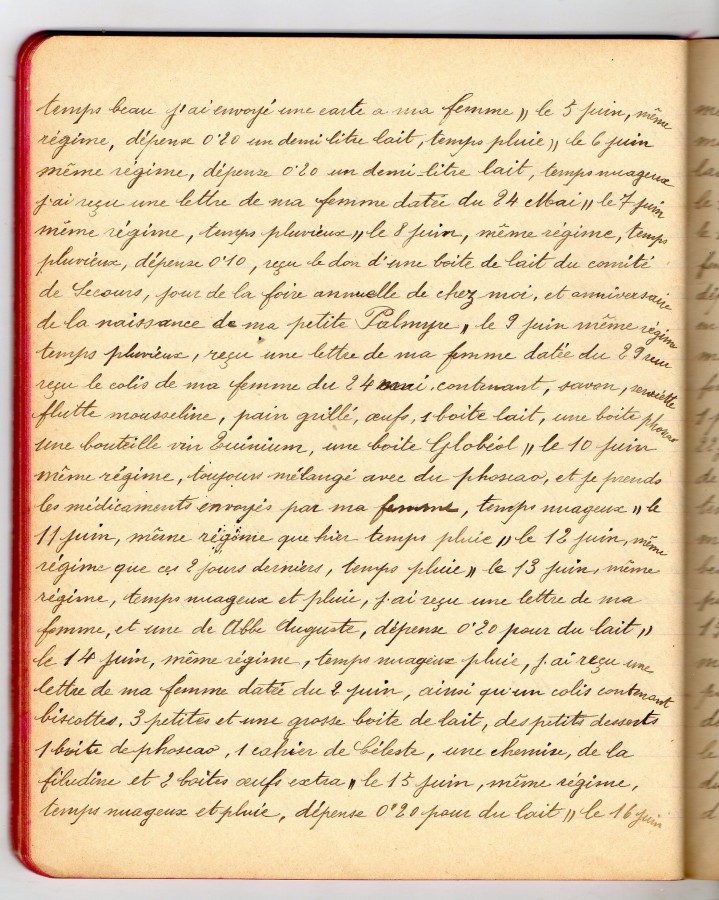 temps beau j'ai envoyé une carte a ma femme ,, le 5 juin, même
régime, dépense 0'20 un demi litre lait, temps pluie ,, le 6 juin
même régime, dépense 0'20 un demi litre lait, temps nuageux
j'ai reçu une lettre de ma femme datée du 24 Mai ,, le 7 juin
même régime, temps pluvieux ,, le 8 juin, même régime, temps
pluvieux, dépense 0'10, reçu le don d'une boite de lait du comité
de Secours, jour de la foire annuelle de chez moi, et anniversaire
de la naissance de ma petite Palmyre ,, le 9 juin même régime
temps pluvieux, reçu une lettre de ma femme datée du 29
reçu le colis de ma femme du 24 mai contenant, savon, serviette
flutte mousseline, pain grillé, œufs, 1 boite lait, une boite phoscao
une bouteille vin Quinium, une boite Globéol ,, le 10 juin
même régime, toujours mélangé avec du phoscao, et je prends
les médicaments envoyés par ma femme, temps nuageux ,, le
11 juin, même régime que hier temps pluie ,, le 12 juin, même
régime que ces 2 jours derniers, temps pluie ,, le 13 juin, même
régime, temps nuageux et pluie, j'ai reçu une lettre de ma
femme, et une de Abbe Auguste, dépense 0'20 pour du lait ,,
le 14 juin, même régime, temps nuageux pluie, j'ai reçu une
lettre de ma femme datée du 2 juin, ainsi qu'un colis contenant
biscottes, 3 petites et une grosse boite de lait, des petits desserts
1 boite de phoscao, 1 cahier de Céleste, une chemise, de la
filudine et 2 boites œufs extra ,, le 15 juin, même régime,
temps nuageux et pluie, dépense 0'20 pour du lait ,, le 16 juin